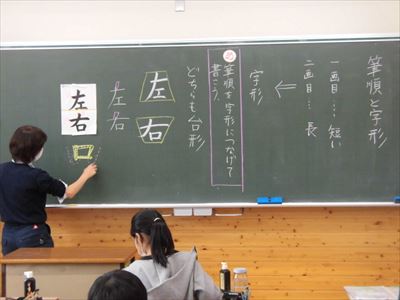 筆順と字形
一画目…短い
二画目…長
←
字形
筆順を字形につなげて
書こう。
どちらも台形
左右
左右
左右